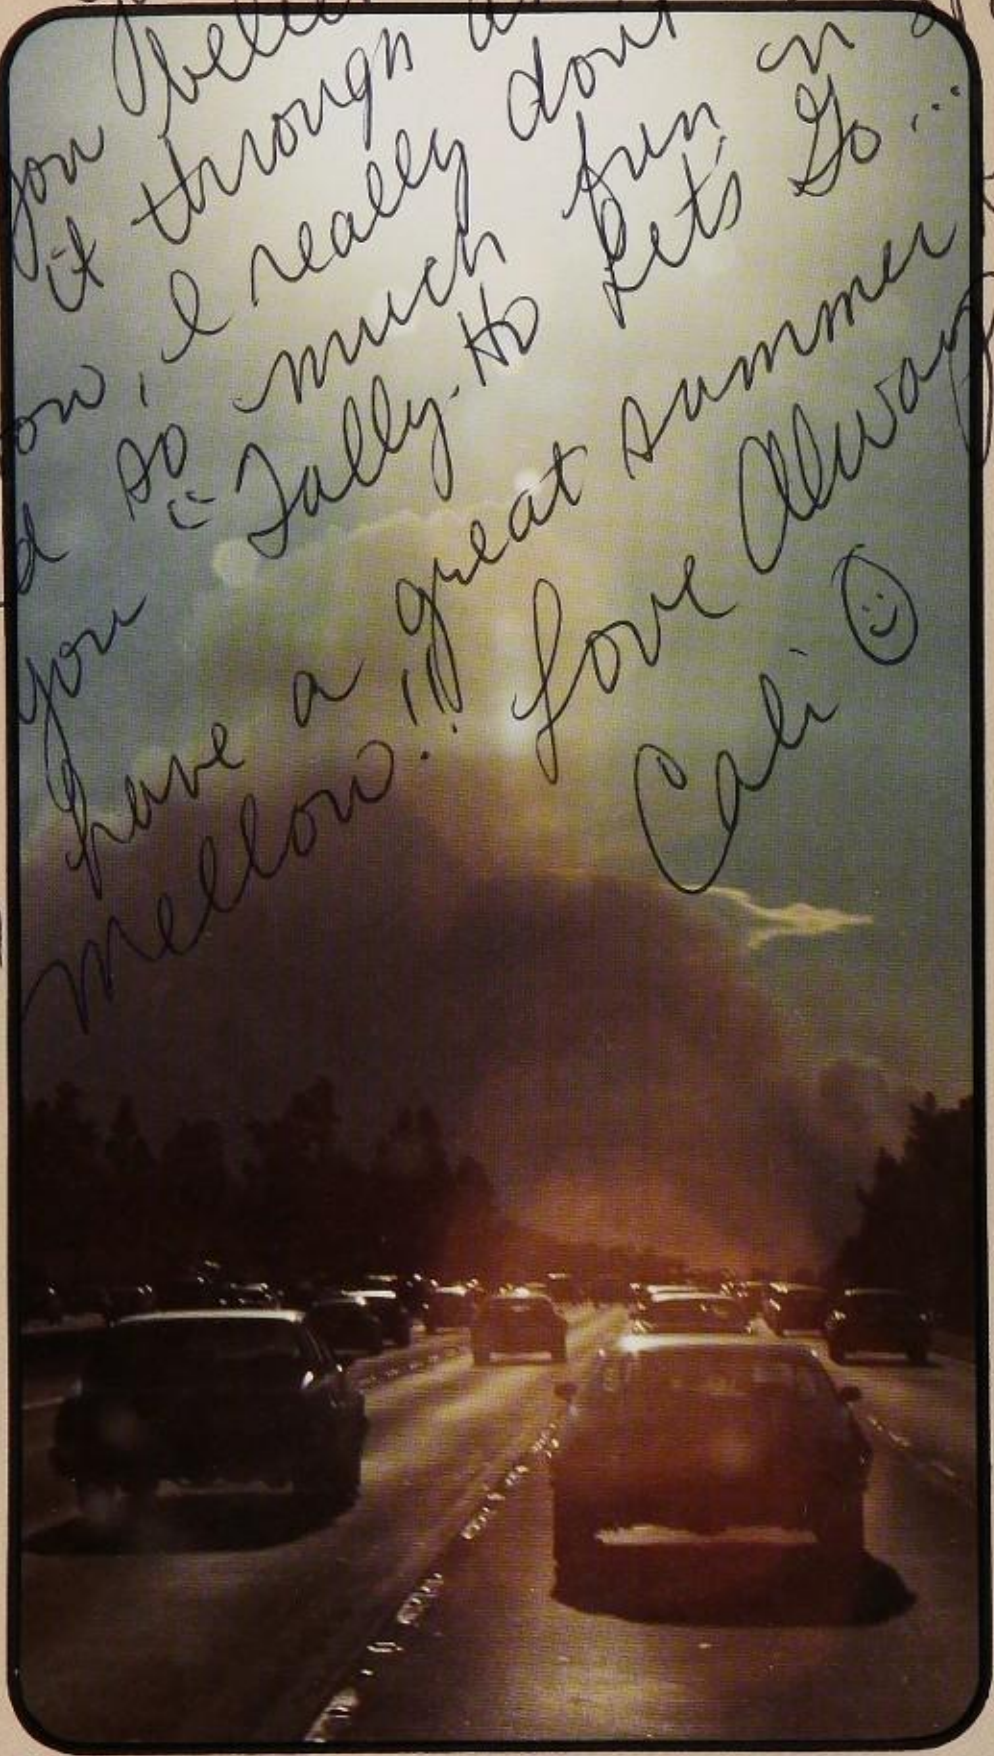 you
it through
ow, I really don't
d so much fun in
you " Tally-Ho Lets Go...
have a great summer
Mellow!! Love Always
Cali ☺